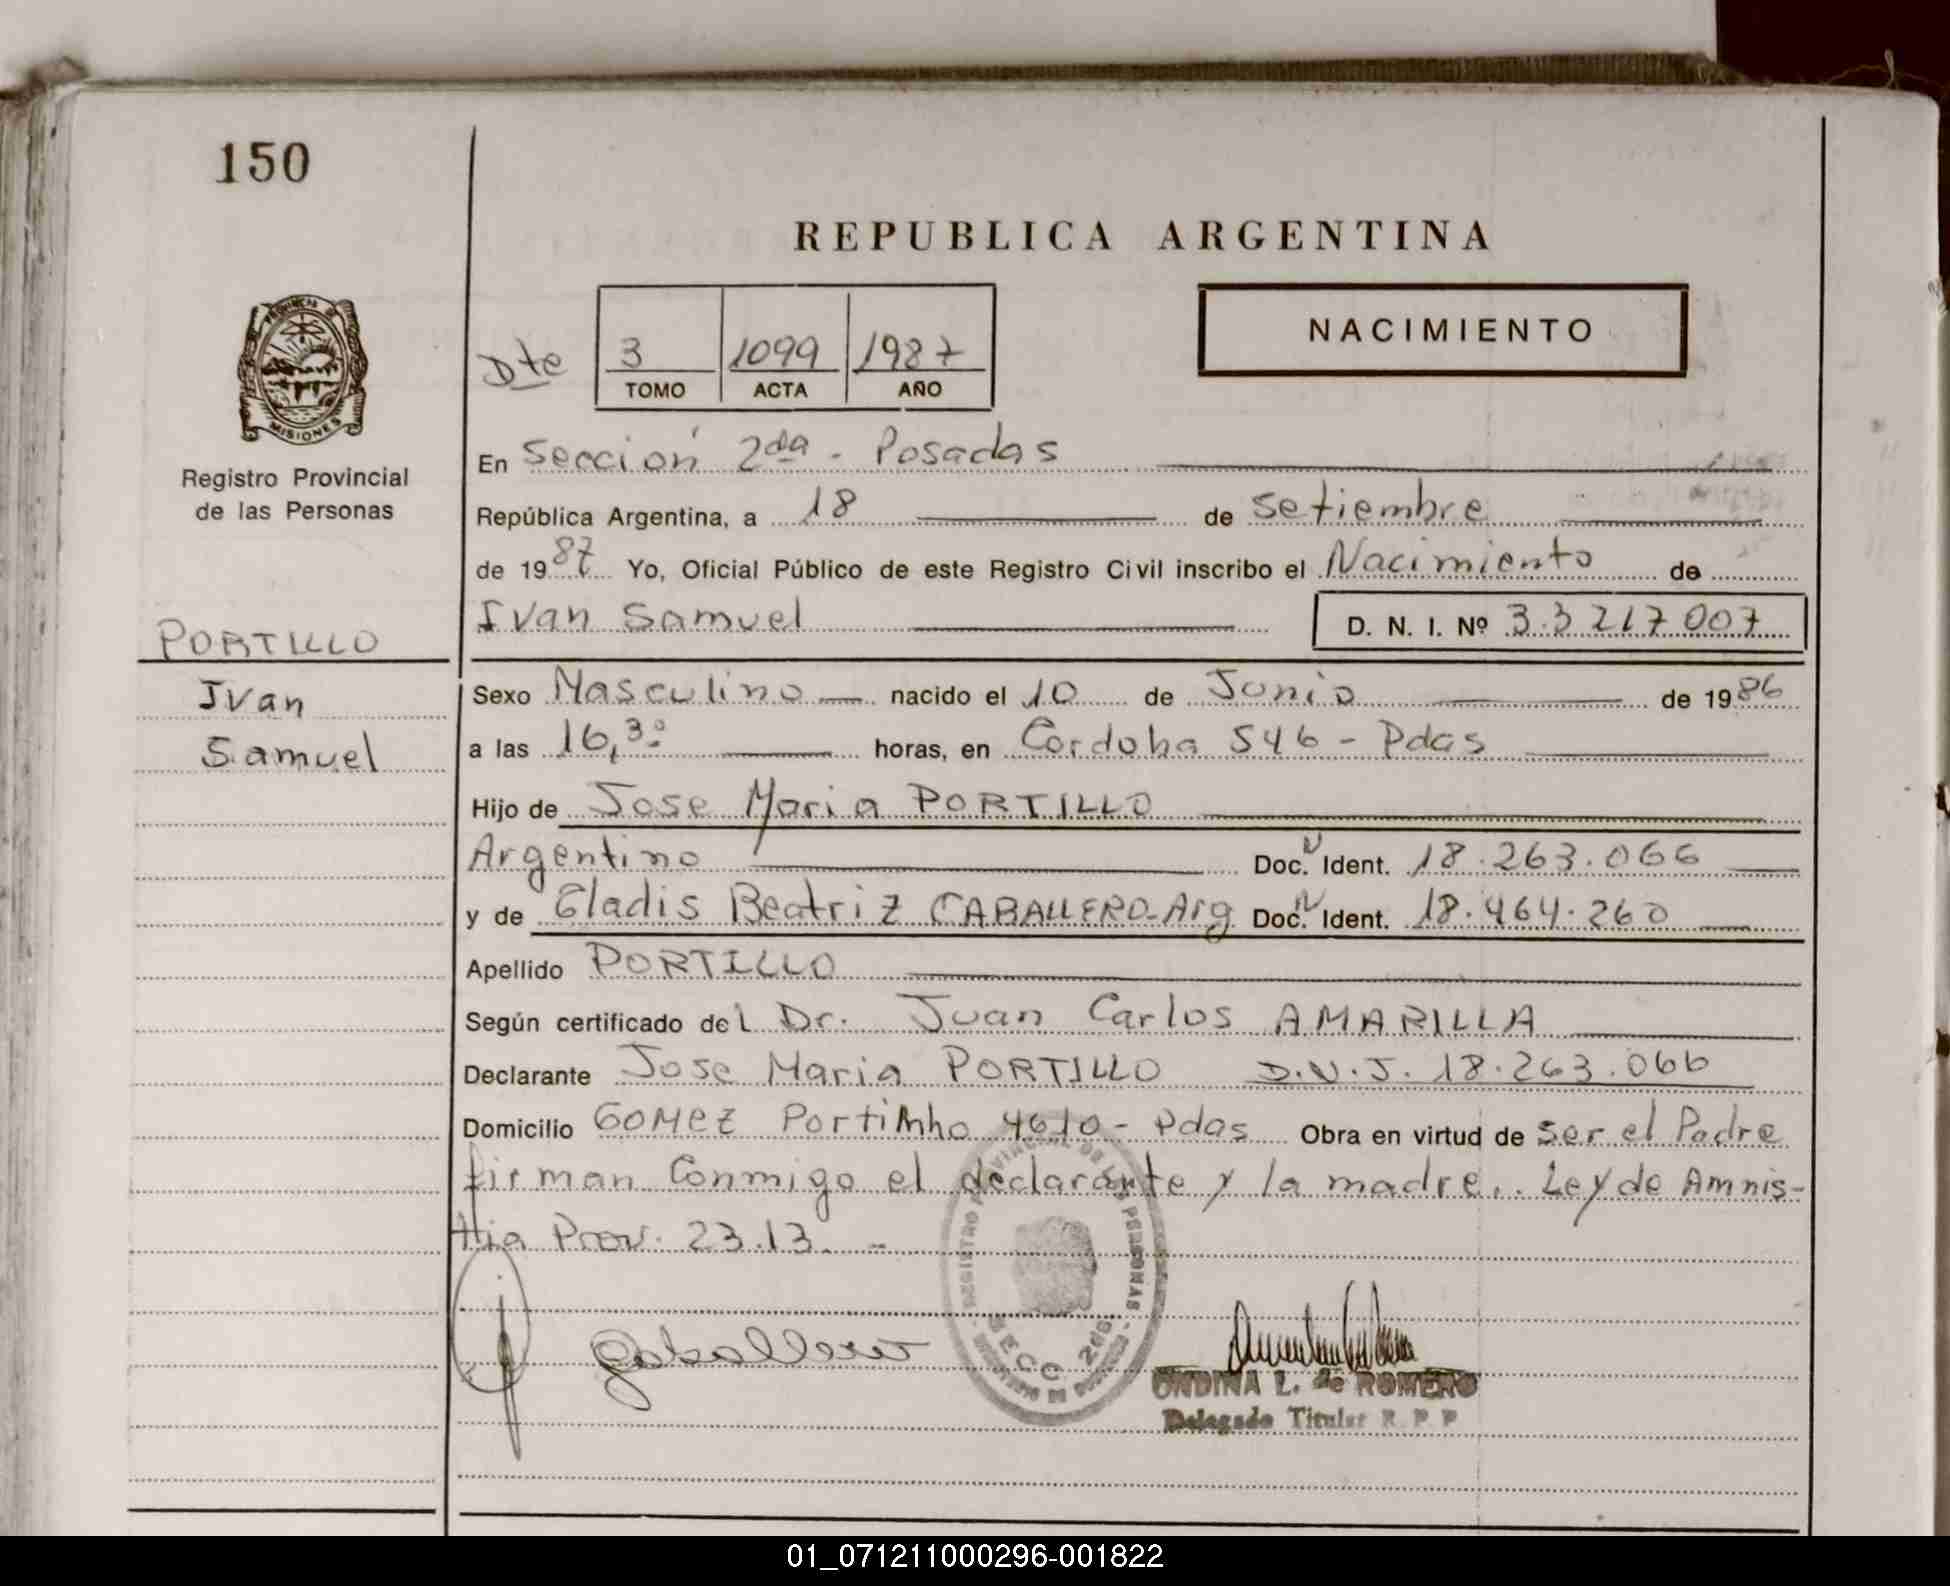 150
REPUBLICA ARGENTINA
NACIMIENTO
Dte 3 1099 1987
TOMO ACTA AÑO
PROVINCIA DE
MISIONES
Registro Provincial
de las Personas
En Sección 2da - Posadas
República Argentina, a 18 de Setiembre
de 1987 Yo, Oficial Público de este Registro Civil inscribo el Nacimiento de
Ivan Samuel D. N. I. Nº 33217007
PORTILLO
Ivan
Samuel
Sexo Masculino nacido el 10 de Junio de 1986
a las 16,30 horas, en Cordoba 546 - Pdas
Hijo de Jose Maria PORTILLO
Argentino Doc. N Ident. 18.263.066
y de Gladis Beatriz CABALLERO-Arg Doc. N Ident. 18.464.260
Apellido PORTILLO
Según certificado del Dr. Juan Carlos AMARILLA
Declarante Jose Maria PORTILLO D.N.I. 18.263.066
Domicilio GOMEZ Portinho 4610 - Pdas Obra en virtud de ser el Padre
firman Conmigo el declarante y la madre.. Ley de Amnis-
tia Prov. 23.13. -
REGISTRO PROVINCIAL DE LAS PERSONAS
SECC 2da
Caballero
ONDINA L. de ROMERO
Delegado Titular R. P. P
01_071211000296-001822